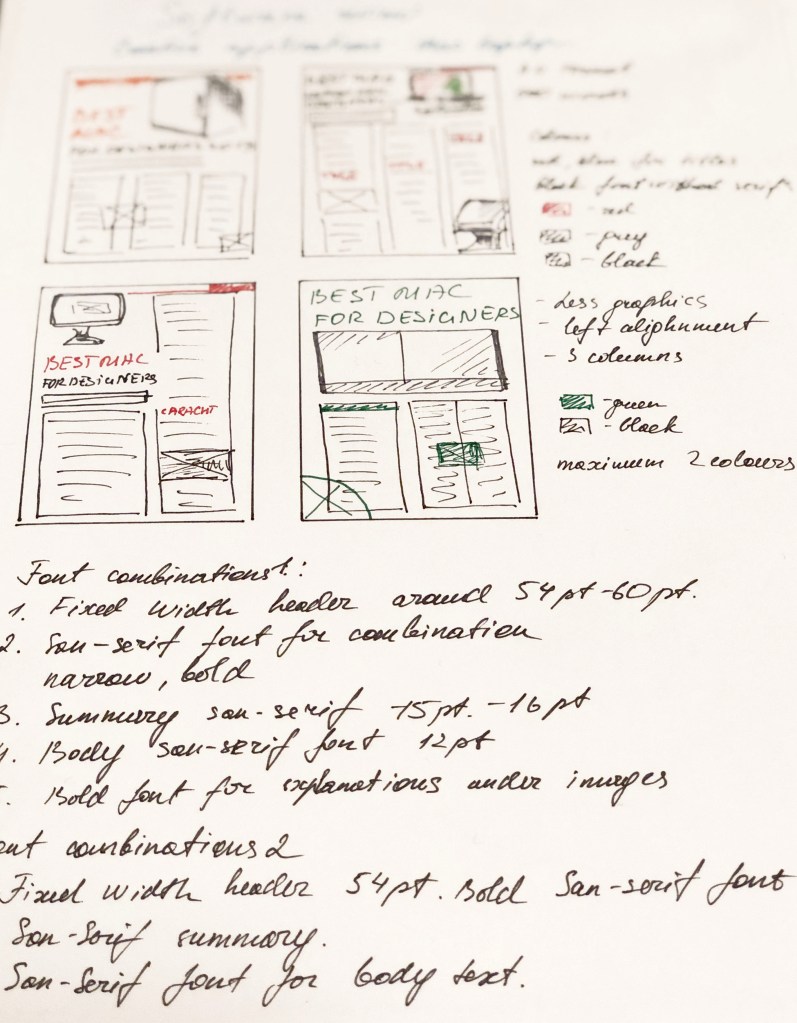 Software
BEST
MAC
FOR DESIGNERS
BEST MAC
colours
red, blue for titles
black font without serif
- red
- grey
- black
BEST MAC
FOR DESIGNERS
BEST MAC
FOR DESIGNERS
CARACHT
- Less graphics
- left alighnment
- 3 columns
- green
- black
maximum 2 colours
Font combinations 1:
1. Fixed width header around 54pt-60pt.
2. San-serif font for combination
narrow, bold
3. Summury san-serif -15pt. -16pt
4. Body san-serif font 12pt
5. Bold font for explanations under images
ont combinations 2
Fixed width header 54pt. Bold San-serif font
San-Serif summary.
San-Serif font for body text.